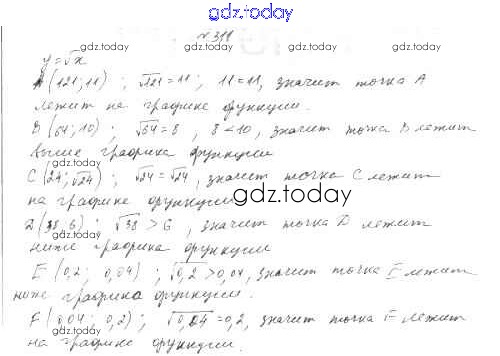 gdz.today
№311
gdz.today gdz.today gdz.today
y=√x
A (121; 11) ; √121=11; 11=11, значит точка A
лежит на графике функции.
gdz.today gdz.today gdz.today
B (64; 10) ; √64=8, 8<10, значит точка B лежит
выше графика функции
C (24; √24) ; √24=√24, значит точка C лежит
на графике функции
gdz.today gdz.today gdz.today
D (38; 6) ; √38>6, значит точка D лежит
ниже графика функции
gdz.today gdz.today gdz.today
E (0,2; 0,04) ; √0,2>0,04, значит точка E лежит
ниже графика функции.
F (0,04; 0,2) ; √0,04=0,2, значит точка F лежит
на графике функции.
gdz.today gdz.today gdz.today